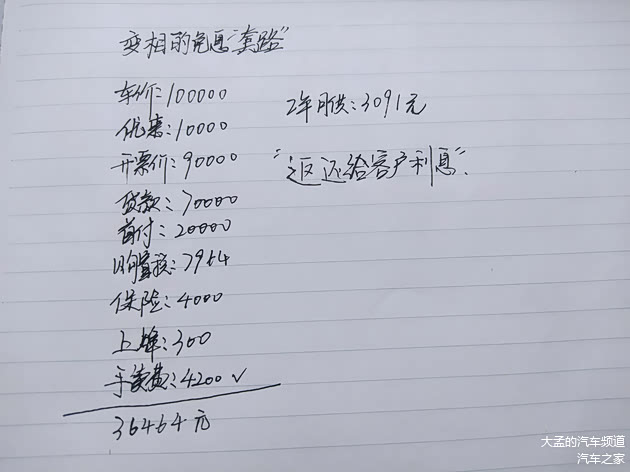 变相的免息“套路”
车价:100000
优惠:10000
开票价:90000
贷款:70000
首付:20000
购置税:7964
保险:4000
上牌:300
手续费:4200✓
36464元
2年月供:3091元
“返还给客户利息”.
大孟的汽车频道
汽车之家